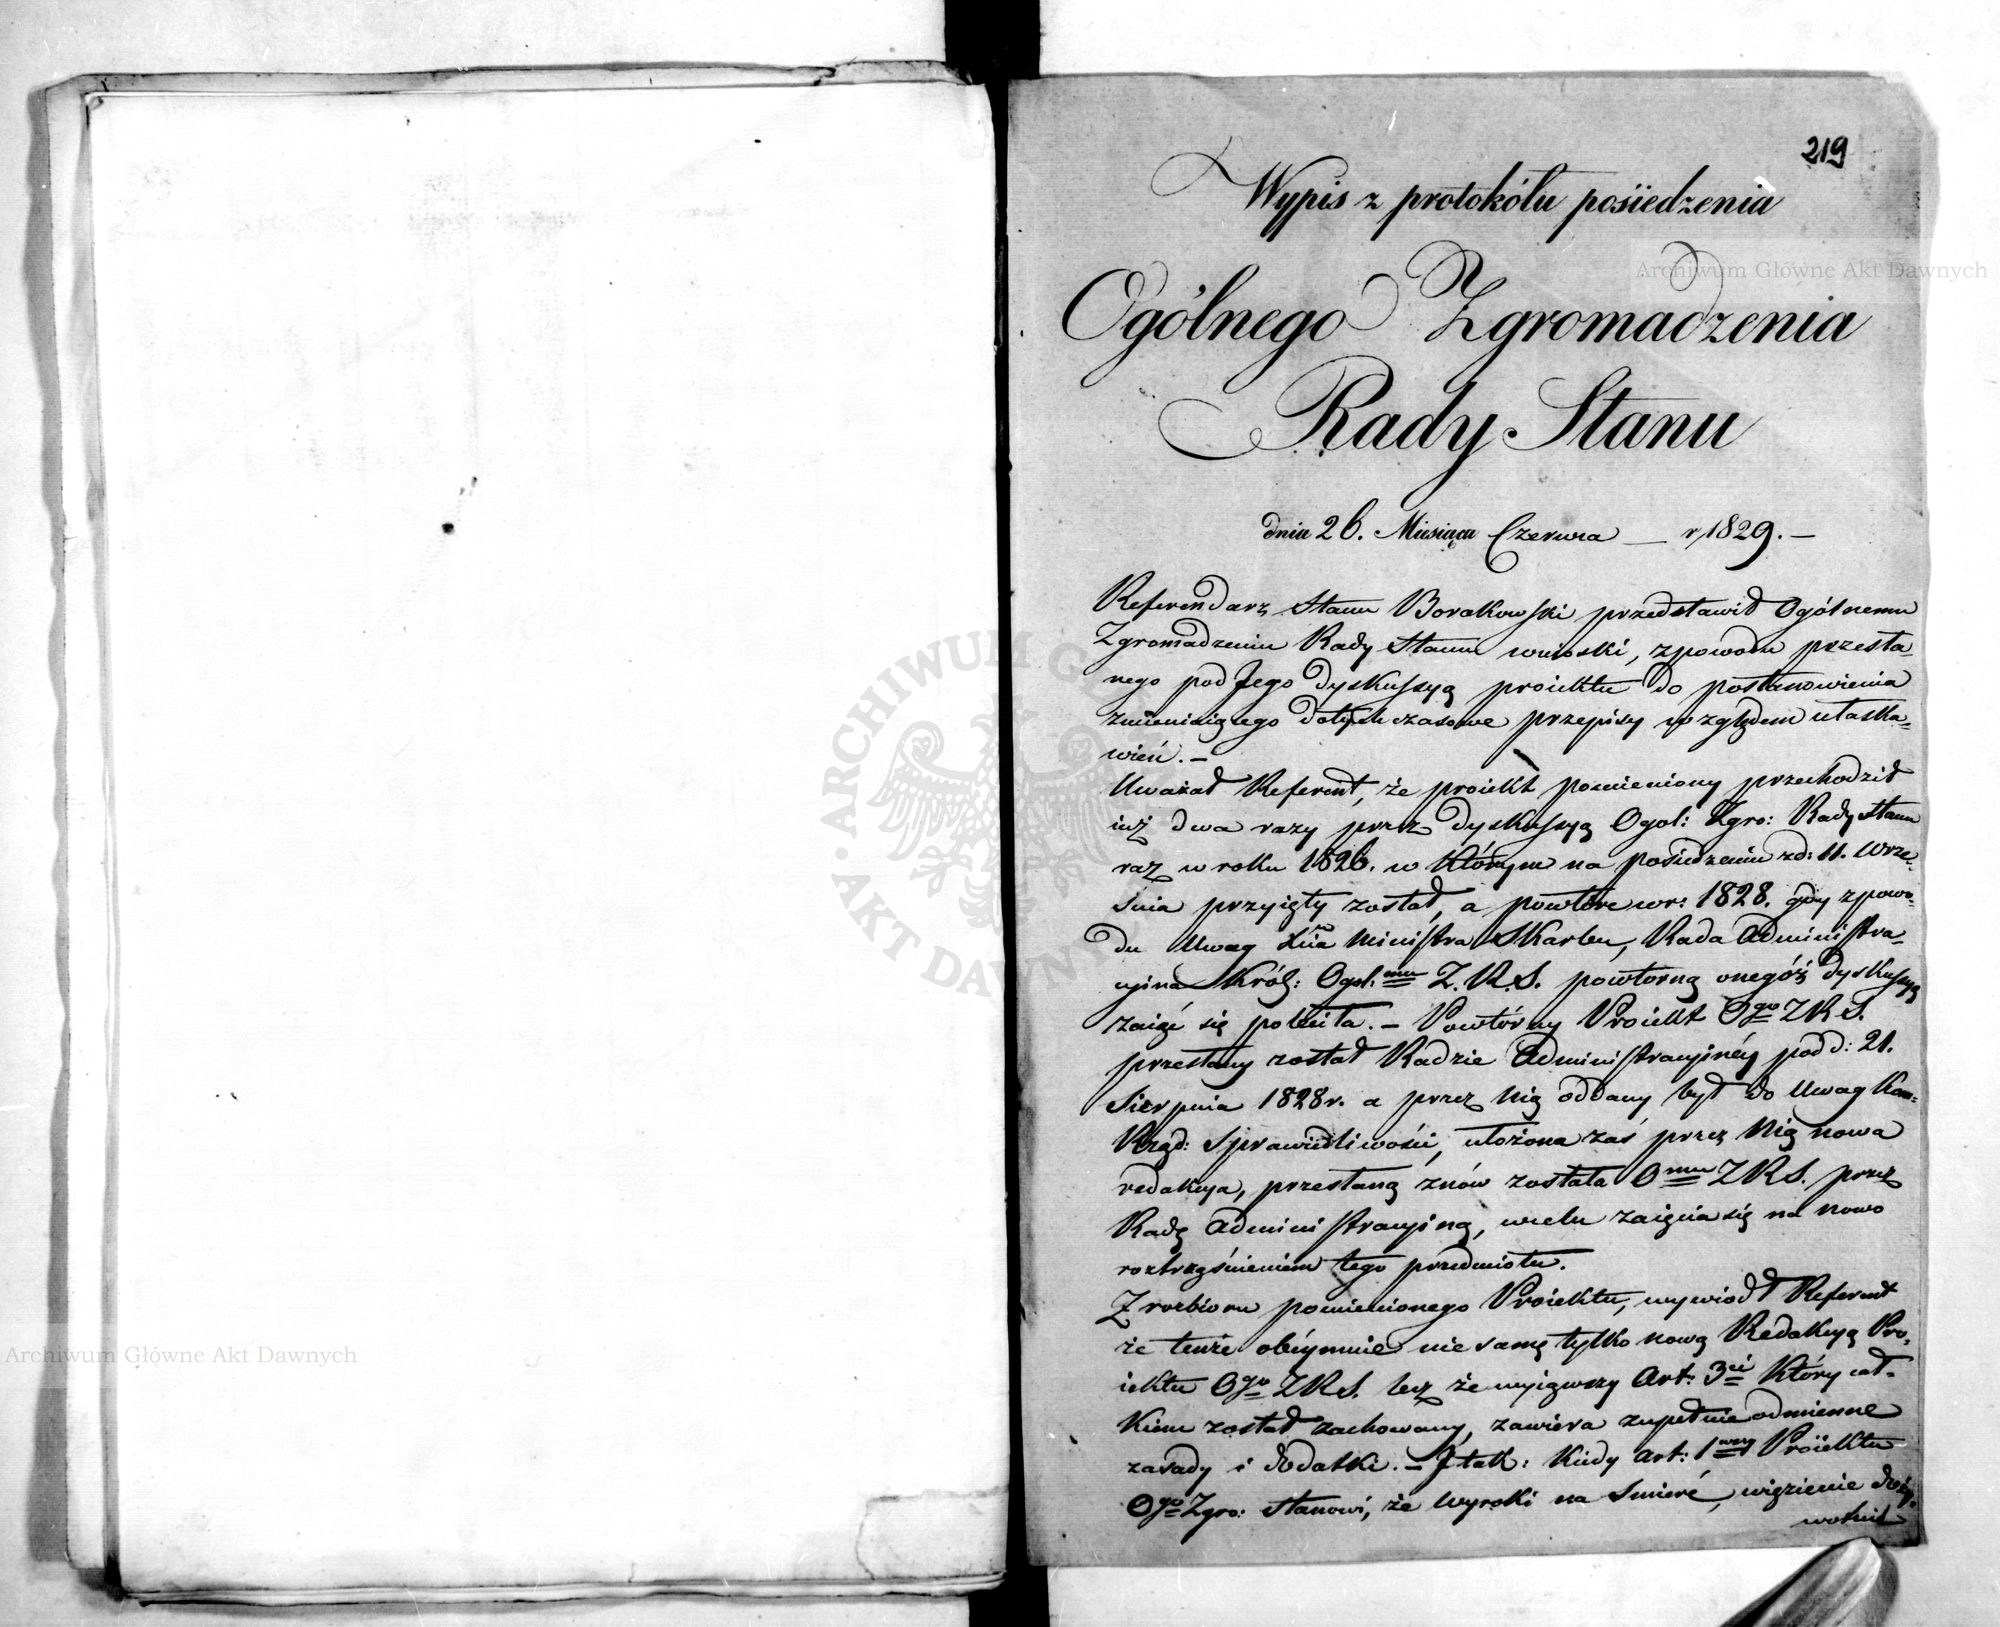 219
Wypis z protokółu posiedzenia
Ogólnego Zgromadzenia
Rady Stanu
dnia 26. Miesiąca Czerwca — r 1829. —
Referendarz Stanu Borakowski przedstawił Ogólnemu
Zgromadzeniu Rady Stanu wnioski, z powodu przesła-
nego pod Jego dyskussyą proiektu do postanowienia
zmieniaiącego dotychczasowe przepisy względem ułaska-
wień. —
Uważał Referent, że proiekt pomieniony przechodził
iuż dwa razy przez dyskussyą Ogól: Zgro: Rady Stanu
raz w roku 1826. w którym na posiedzeniu z d: 11. Wrze-
śnia przyięty został, a powtóre w r: 1828. gdy z powo-
du Uwag Ministra Skarbu, Rada Administra-
cyina Król: Ogól:mu Z. R. S. powtórną onegóż dyskussyą
zaiąć się poleciła. — Powtórny Proiekt Ogo Z R S.
przesłany został Radzie Administracyinéy pod d: 21.
Sierpnia 1828 r. a przez Nią oddany był do Uwag Kom:
Rząd: Sprawiedliwości, ułożona zaś przez Nią nowa
redakcya, przesłaną znów została Omu Z R S. przez
Radę Administracyiną, w celu zaięcia się na nowo
roztrząśnieniem tego przedmiotu.
Z rozbioru pomienionego Proiektu, wywiódł Referent
że tenże obéymuie nie samę tylko nową Redakcyą Pro-
iektu Ogo Z R S. lecz że wyiąwszy Art: 3ci który cał-
kiem został zachowany, zawiera zupełnie odmienne
zasady i dodatki. — I tak: kiedy Art: 1wszy Proiektu
Ogo Zgro: stanowi, że wyroki na śmierć, więzienie doży-
wotnie
Archiwum Główne Akt Dawnych
Archiwum Główne Akt Dawnych
ARCHIWUM GŁÓWNE · AKT DAWNYCH